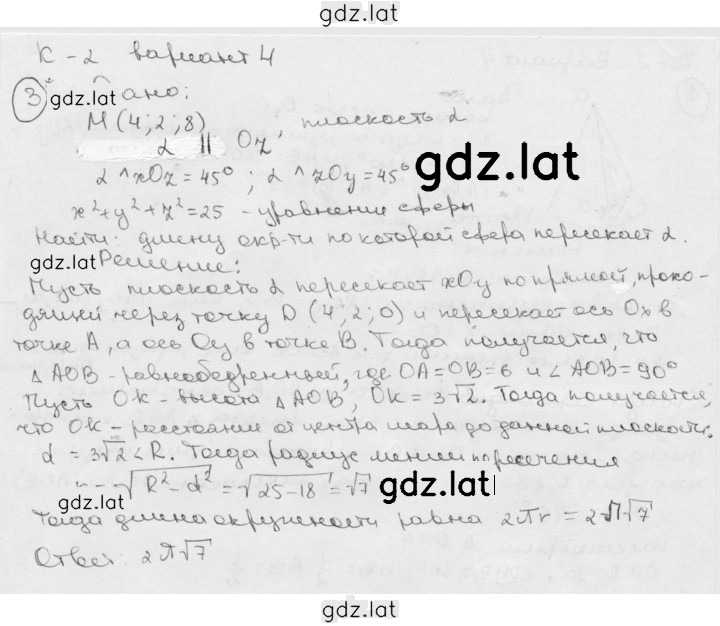 gdz.lat
К-2 вариант 4
3 Дано:
gdz.lat
M (4;2;8), плоскость α
α || Oz
α ^ xOz = 45° ; α ^ zOy = 45°
gdz.lat
x²+y²+z²=25 - уравнение сферы
Найти: длину окр-ти по которой сфера пересекает α.
gdz.lat Решение:
Пусть плоскость α пересекает xOy по прямой, прохо-
дящей через точку D (4;2;0) и пересекает ось Ox в
точке A, а ось Oy в точке B. Тогда получается, что
△ AOB - равнобедренный, где OA=OB=6 и ∠AOB=90°
Пусть OK - высота △ AOB, OK = 3√2. Тогда получается,
что OK - расстояние от центра шара до данной плоскости:
d = 3√2 < R. Тогда радиус линии пересечения
= √R²-d² = √25-18 = √7
gdz.lat
Тогда длина окружности равна 2πr = 2π√7
Ответ: 2π√7
gdz.lat